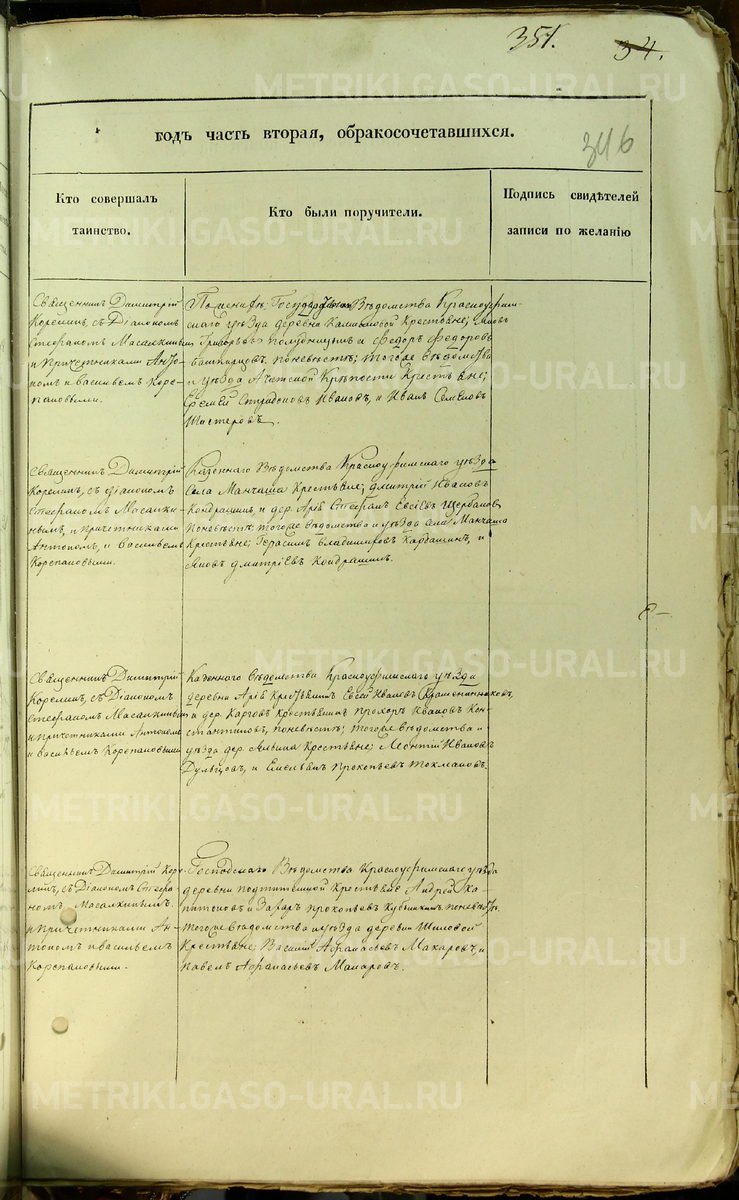 351.
34.
годъ часть вторая, обракосочетавшихся.
346
Кто совершалъ
таинство.
Кто были поручители.
Подпись свидѣтелей
записи по желанію
Священникъ Димитрій
Корелинъ, съ Діакономъ
Стефаномъ Масалкинымъ
и Причетниками Анто-
номъ и Васильемъ Коре-
пановыми.
По женихѣ: Вѣдомства Красноуфим-
скаго уѣзда деревни Крестьяне;
Григорьевъ и Федоръ Федоровъ
по невѣстѣ; тогоже вѣдомства
и уѣзда Ачитской Крѣпости Крестьяне;
Ивановъ, и Иванъ Семеновъ
Шастеровъ.
Священникъ Димитрій
Корелинъ, съ діакономъ
Стефаномъ Масалки-
нымъ, и причетниками
Антономъ, и Васильемъ
Корепановыми.
Казеннаго Вѣдомства Красноуфимскаго уѣзда
Села Манчажа Крестьяне; дмитрій Ивановъ
Кондрашинъ, и дер. Арій Стефанъ Евсіевъ Щербаковъ
По невѣстѣ: тогоже вѣдомства и уѣзда села Манчажа
Крестьяне; Герасимъ Владимировъ Кардашинъ, и
Яковъ дмитріевъ Кондрашинъ.
Священникъ Димитрій
Корелинъ, съ Діакономъ
Стефаномъ Масалкинымъ
и причетниками Антономъ
и Васильемъ Корепановыми
Казеннаго Вѣдомства Красноуфимскаго уѣзда
деревни Арій Крестьянинъ Евсей Ивановъ
и дер. Карговъ Крестьянинъ прохоръ Ивановъ Кон-
стантиновъ, по невѣстѣ; тогоже вѣдомства и
уѣзда дер. Крестьяне; Леонтій Ивановъ
и Емельянъ Прокопьевъ Токмаковъ.
Священникъ Димитрій Коре-
линъ, съ Діакономъ Стефа-
номъ Масалкинымъ
и причетниками Ан-
тономъ и Васильемъ
Корепановыми.
Господскаго Вѣдомства Красноуфимскаго уѣзда
деревни Крестьяне Андрей Ка-
питоновъ и Захаръ прокопьевъ по невѣстѣ.
тогоже вѣдомства и уѣзда деревни Шиловой
Крестьяне; Василій Афанасьевъ Макаровъ, и
Павелъ Афанасьевъ Макаровъ.
METRIKI.GASO-URAL.RU